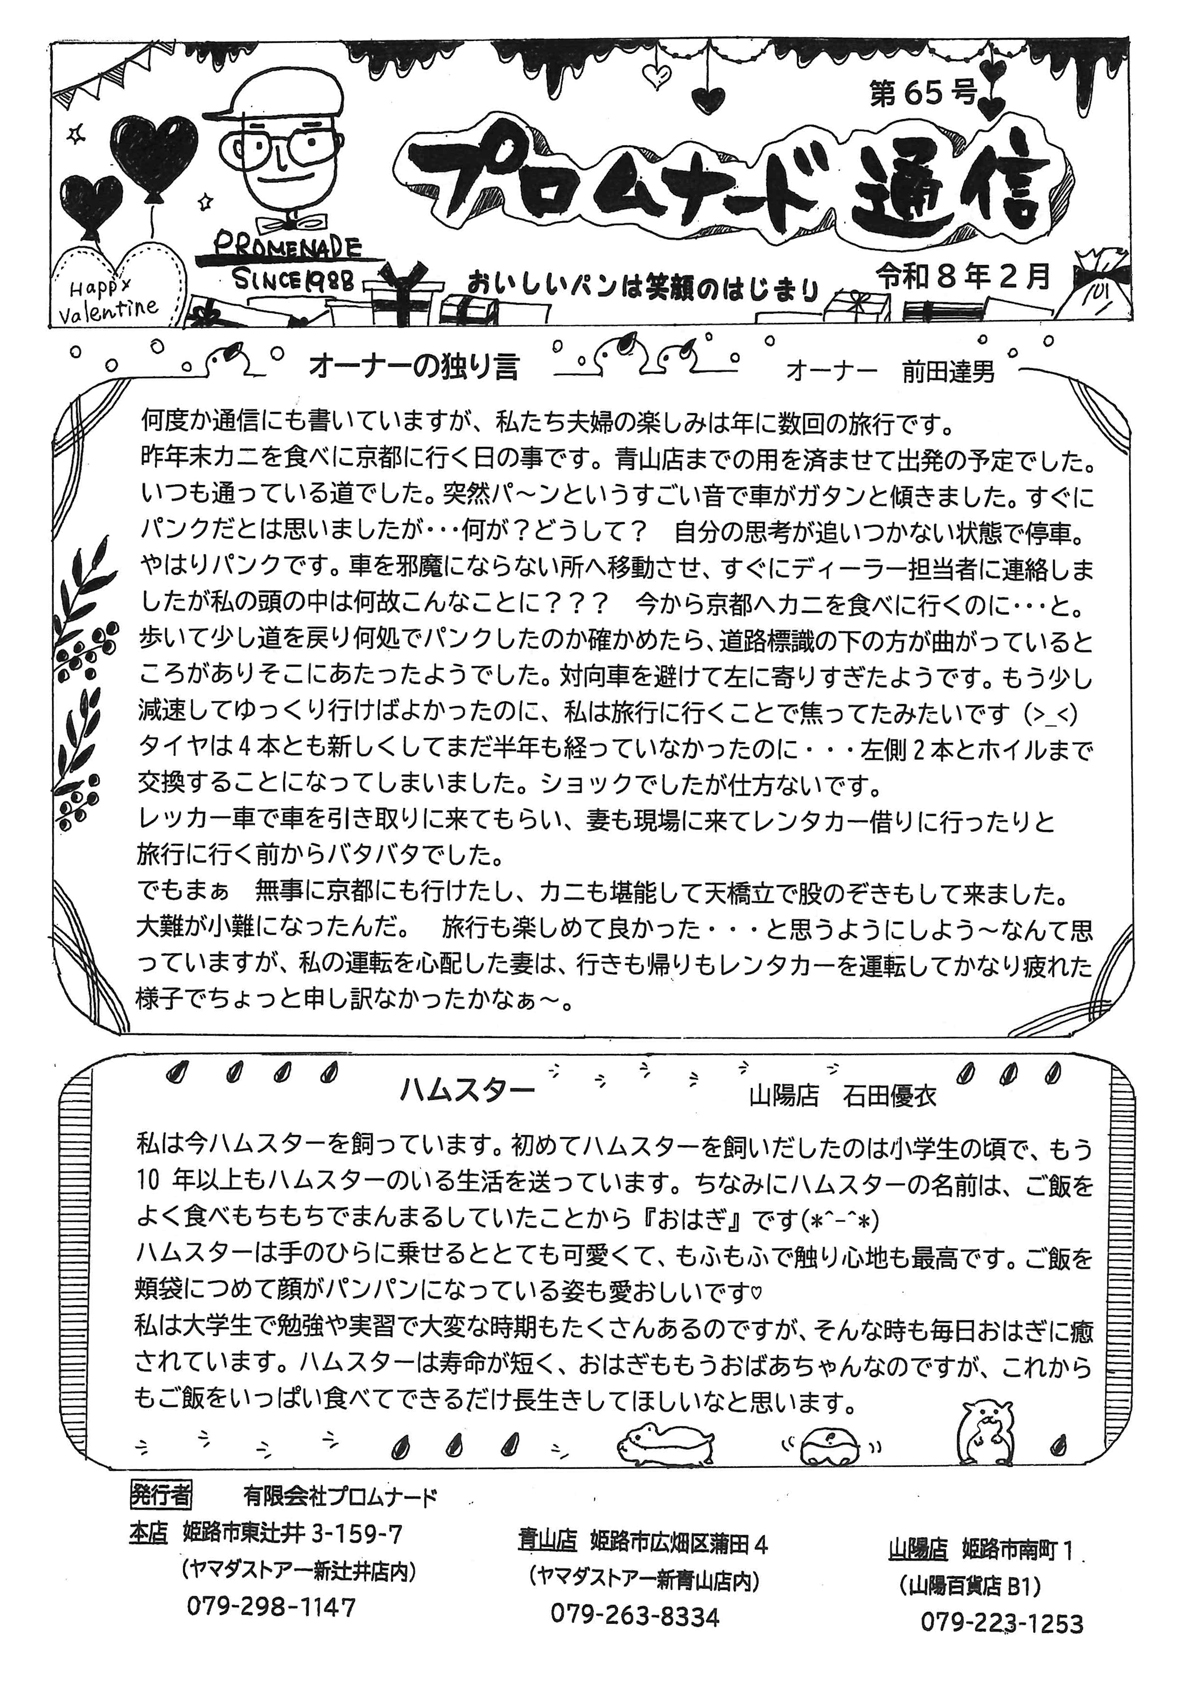 第65号
プロムナード通信
PROMENADE
SINCE1988
Happy
Valentine
おいしいパンは笑顔のはじまり
令和8年2月
オーナーの独り言
オーナー　前田達男
何度か通信にも書いていますが、私たち夫婦の楽しみは年に数回の旅行です。
昨年末カニを食べに京都に行く日の事です。青山店までの用を済ませて出発の予定でした。
いつも通っている道でした。突然パ〜ンというすごい音で車がガタンと傾きました。すぐに
パンクだとは思いましたが･･･何が？どうして？　自分の思考が追いつかない状態で停車。
やはりパンクです。車を邪魔にならない所へ移動させ、すぐにディーラー担当者に連絡しま
したが私の頭の中は何故こんなことに？？？　今から京都へカニを食べに行くのに･･･と。
歩いて少し道を戻り何処でパンクしたのか確かめたら、道路標識の下の方が曲がっていると
ころがありそこにあたったようでした。対向車を避けて左に寄りすぎたようです。もう少し
減速してゆっくり行けばよかったのに、私は旅行に行くことで焦ってたみたいです (>_<)
タイヤは4本とも新しくしてまだ半年も経っていなかったのに・・・左側2本とホイルまで
交換することになってしまいました。ショックでしたが仕方ないです。
レッカー車で車を引き取りに来てもらい、妻も現場に来てレンタカー借りに行ったりと
旅行に行く前からバタバタでした。
でもまぁ　無事に京都にも行けたし、カニも堪能して天橋立で股のぞきもして来ました。
大難が小難になったんだ。　旅行も楽しめて良かった・・・と思うようにしよう〜なんて思
っていますが、私の運転を心配した妻は、行きも帰りもレンタカーを運転してかなり疲れた
様子でちょっと申し訳なかったかなぁ〜。
ハムスター
山陽店　石田優衣
私は今ハムスターを飼っています。初めてハムスターを飼いだしたのは小学生の頃で、もう
10 年以上もハムスターのいる生活を送っています。ちなみにハムスターの名前は、ご飯を
よく食べもちもちでまんまるしていたことから『おはぎ』です(*^-^*)
ハムスターは手のひらに乗せるととても可愛くて、もふもふで触り心地も最高です。ご飯を
頬袋につめて顔がパンパンになっている姿も愛おしいです♡
私は大学生で勉強や実習で大変な時期もたくさんあるのですが、そんな時も毎日おはぎに癒
されています。ハムスターは寿命が短く、おはぎももうおばあちゃんなのですが、これから
もご飯をいっぱい食べてできるだけ長生きしてほしいなと思います。
発行者　有限会社プロムナード
本店　姫路市東辻井 3-159-7
(ヤマダストアー新辻井店内)
079-298-1147
青山店　姫路市広畑区蒲田4
(ヤマダストアー新青山店内)
079-263-8334
山陽店　姫路市南町1
(山陽百貨店B1)
079-223-1253